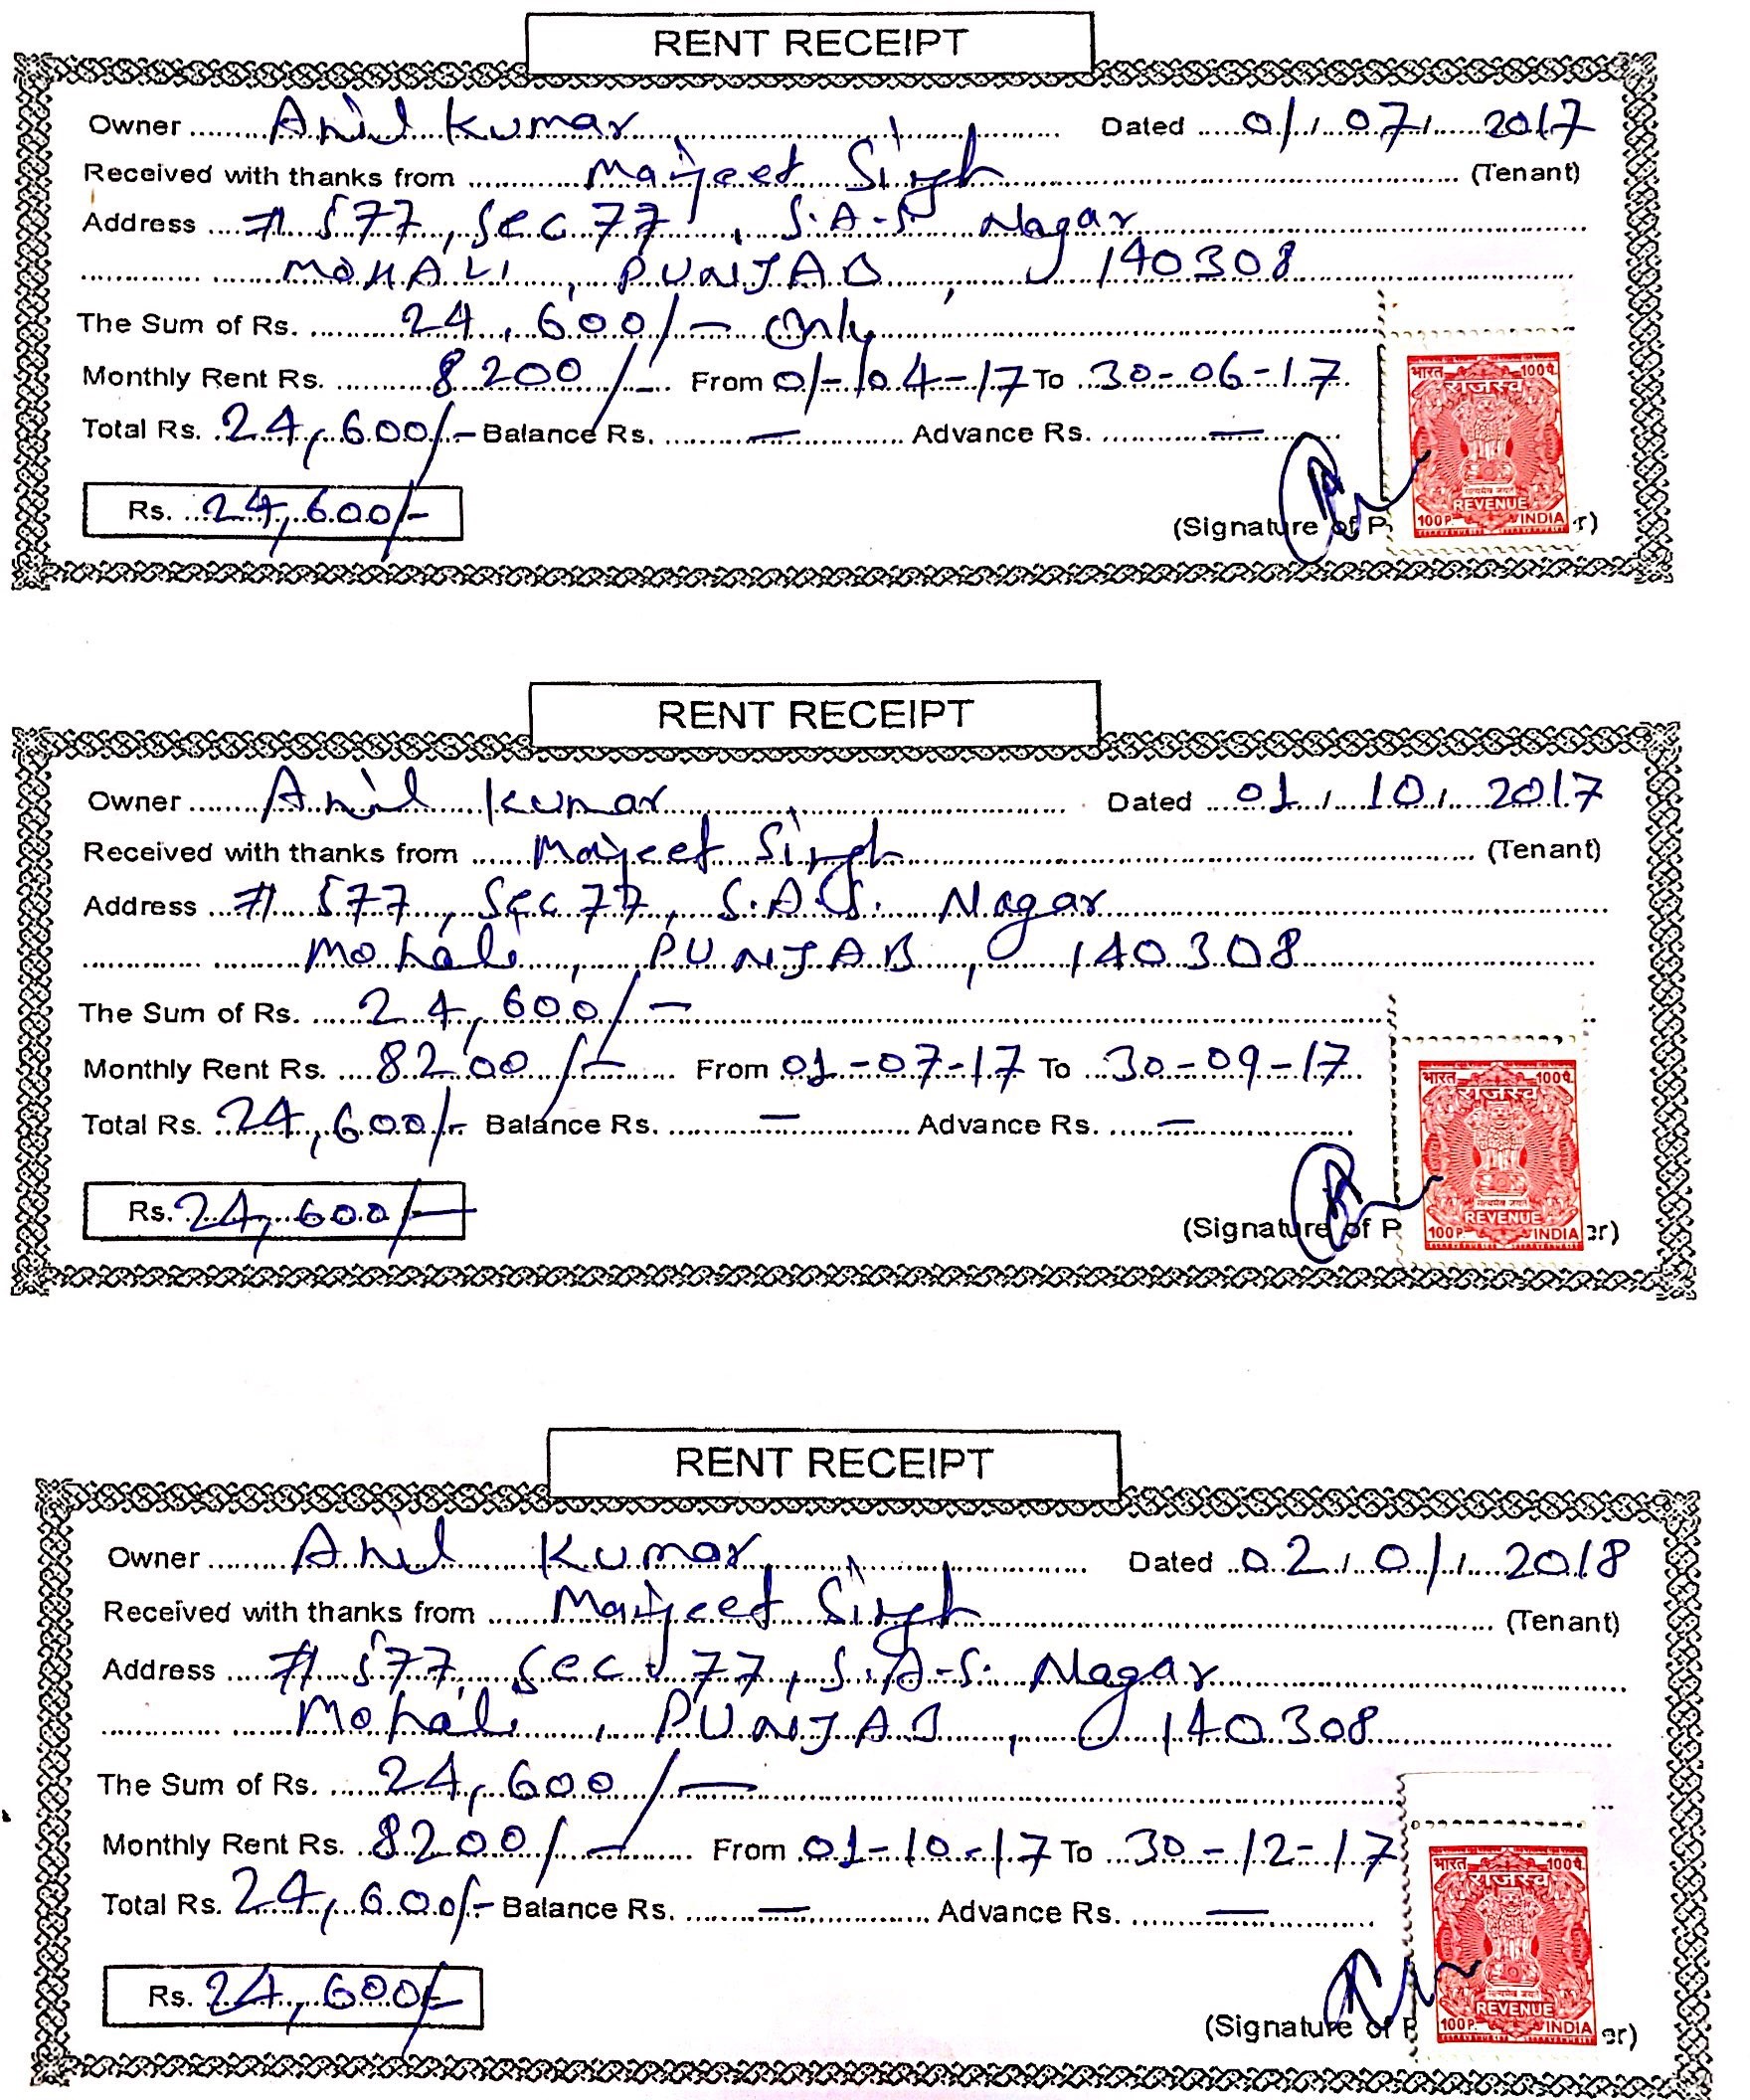 RENT RECEIPT
Owner Anil Kumar Dated 01/07/2017
Received with thanks from Manjeet Singh (Tenant)
Address # 577, Sec 77, S.A.S. Nagar
MOHALI, PUNJAB, 140308
The Sum of Rs. 24,600/- Only
Monthly Rent Rs. 8200/- From 01-04-17 To 30-06-17
Total Rs. 24,600/- Balance Rs. — Advance Rs. —
भारत 100प.
राजस्व
सत्यमेव जयते
REVENUE
100P. INDIA
Rs. 24,600/-
(Signature of P r)
RENT RECEIPT
Owner Anil Kumar Dated 01/10/2017
Received with thanks from Manjeet Singh (Tenant)
Address # 577, Sec 77, S.A.S. Nagar
Mohali, PUNJAB, 140308
The Sum of Rs. 24,600/-
Monthly Rent Rs. 8200/- From 01-07-17 To 30-09-17
Total Rs. 24,600/- Balance Rs. — Advance Rs. —
भारत 100प.
राजस्व
सत्यमेव जयते
REVENUE
100P. INDIA
Rs. 24,600/-
(Signature of P er)
RENT RECEIPT
Owner Anil Kumar Dated 02/01/2018
Received with thanks from Manjeet Singh (Tenant)
Address # 577, Sec 77, S.A.S. Nagar
Mohali, PUNJAB, 140308
The Sum of Rs. 24,600/-
Monthly Rent Rs. 8200/- From 01-10-17 To 30-12-17
Total Rs. 24,600/- Balance Rs. — Advance Rs. —
भारत 100प.
राजस्व
REVENUE
100P. INDIA
Rs. 24,600/-
(Signature of P er)